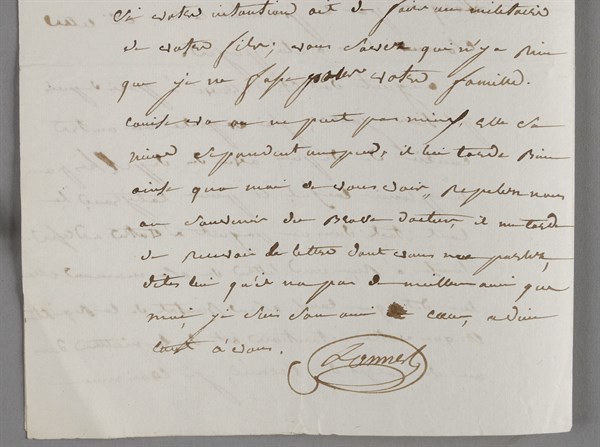 Si votre intention est de faire un militaire
de votre fils; vous savez qui n'y a Rien
que je ne fasse pour votre famille.
Louise va on ne peut pas mieux, elle sa
cependent un peu, il lui tarde Bien
ainsi que moi de vous voir, Rapelez nous
au Souvenir du Brave docteur, il me tarde
de Recevoir la lettre dont vous me parlez,
dites lui qu'il na pas de meilleur ami que
moi, je suis son ami de cœur, adieu
tout a vous.
Lannes